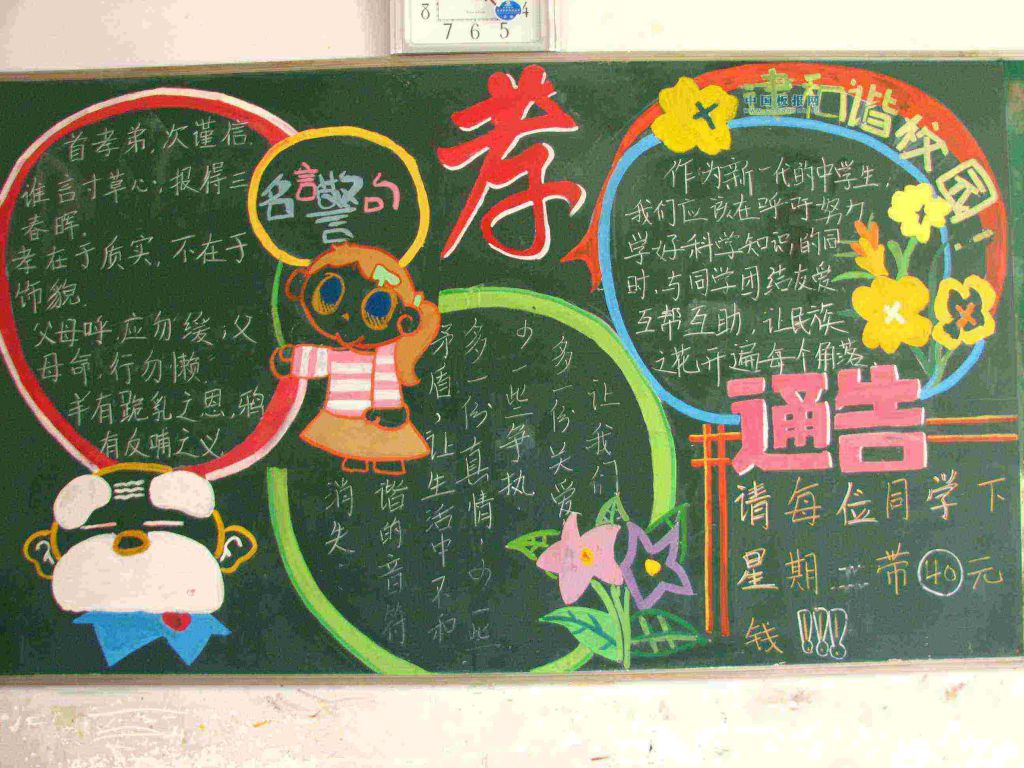 8 7 6 5 4
孝
首孝弟,次谨信.
谁言寸草心,报得三
春晖.
孝在于质实,不在于
饰貌.
父母呼,应勿缓;父
母命,行勿懒.
羊有跪乳之恩,鸦
有反哺之义.
名言警句
让我们
多一份关爱
少一些争执.
多一份真情,少一些
矛盾,让生活中不和
谐的音符
消失.
建和谐校园!
中国板报网
作为新一代的中学生,
我们应该在呼吁努力
学好科学知识的同
时,与同学团结友爱
互帮互助,让民族
之花,开遍每个角落.
通告
请每位同学下
星期 带40元
钱!!!